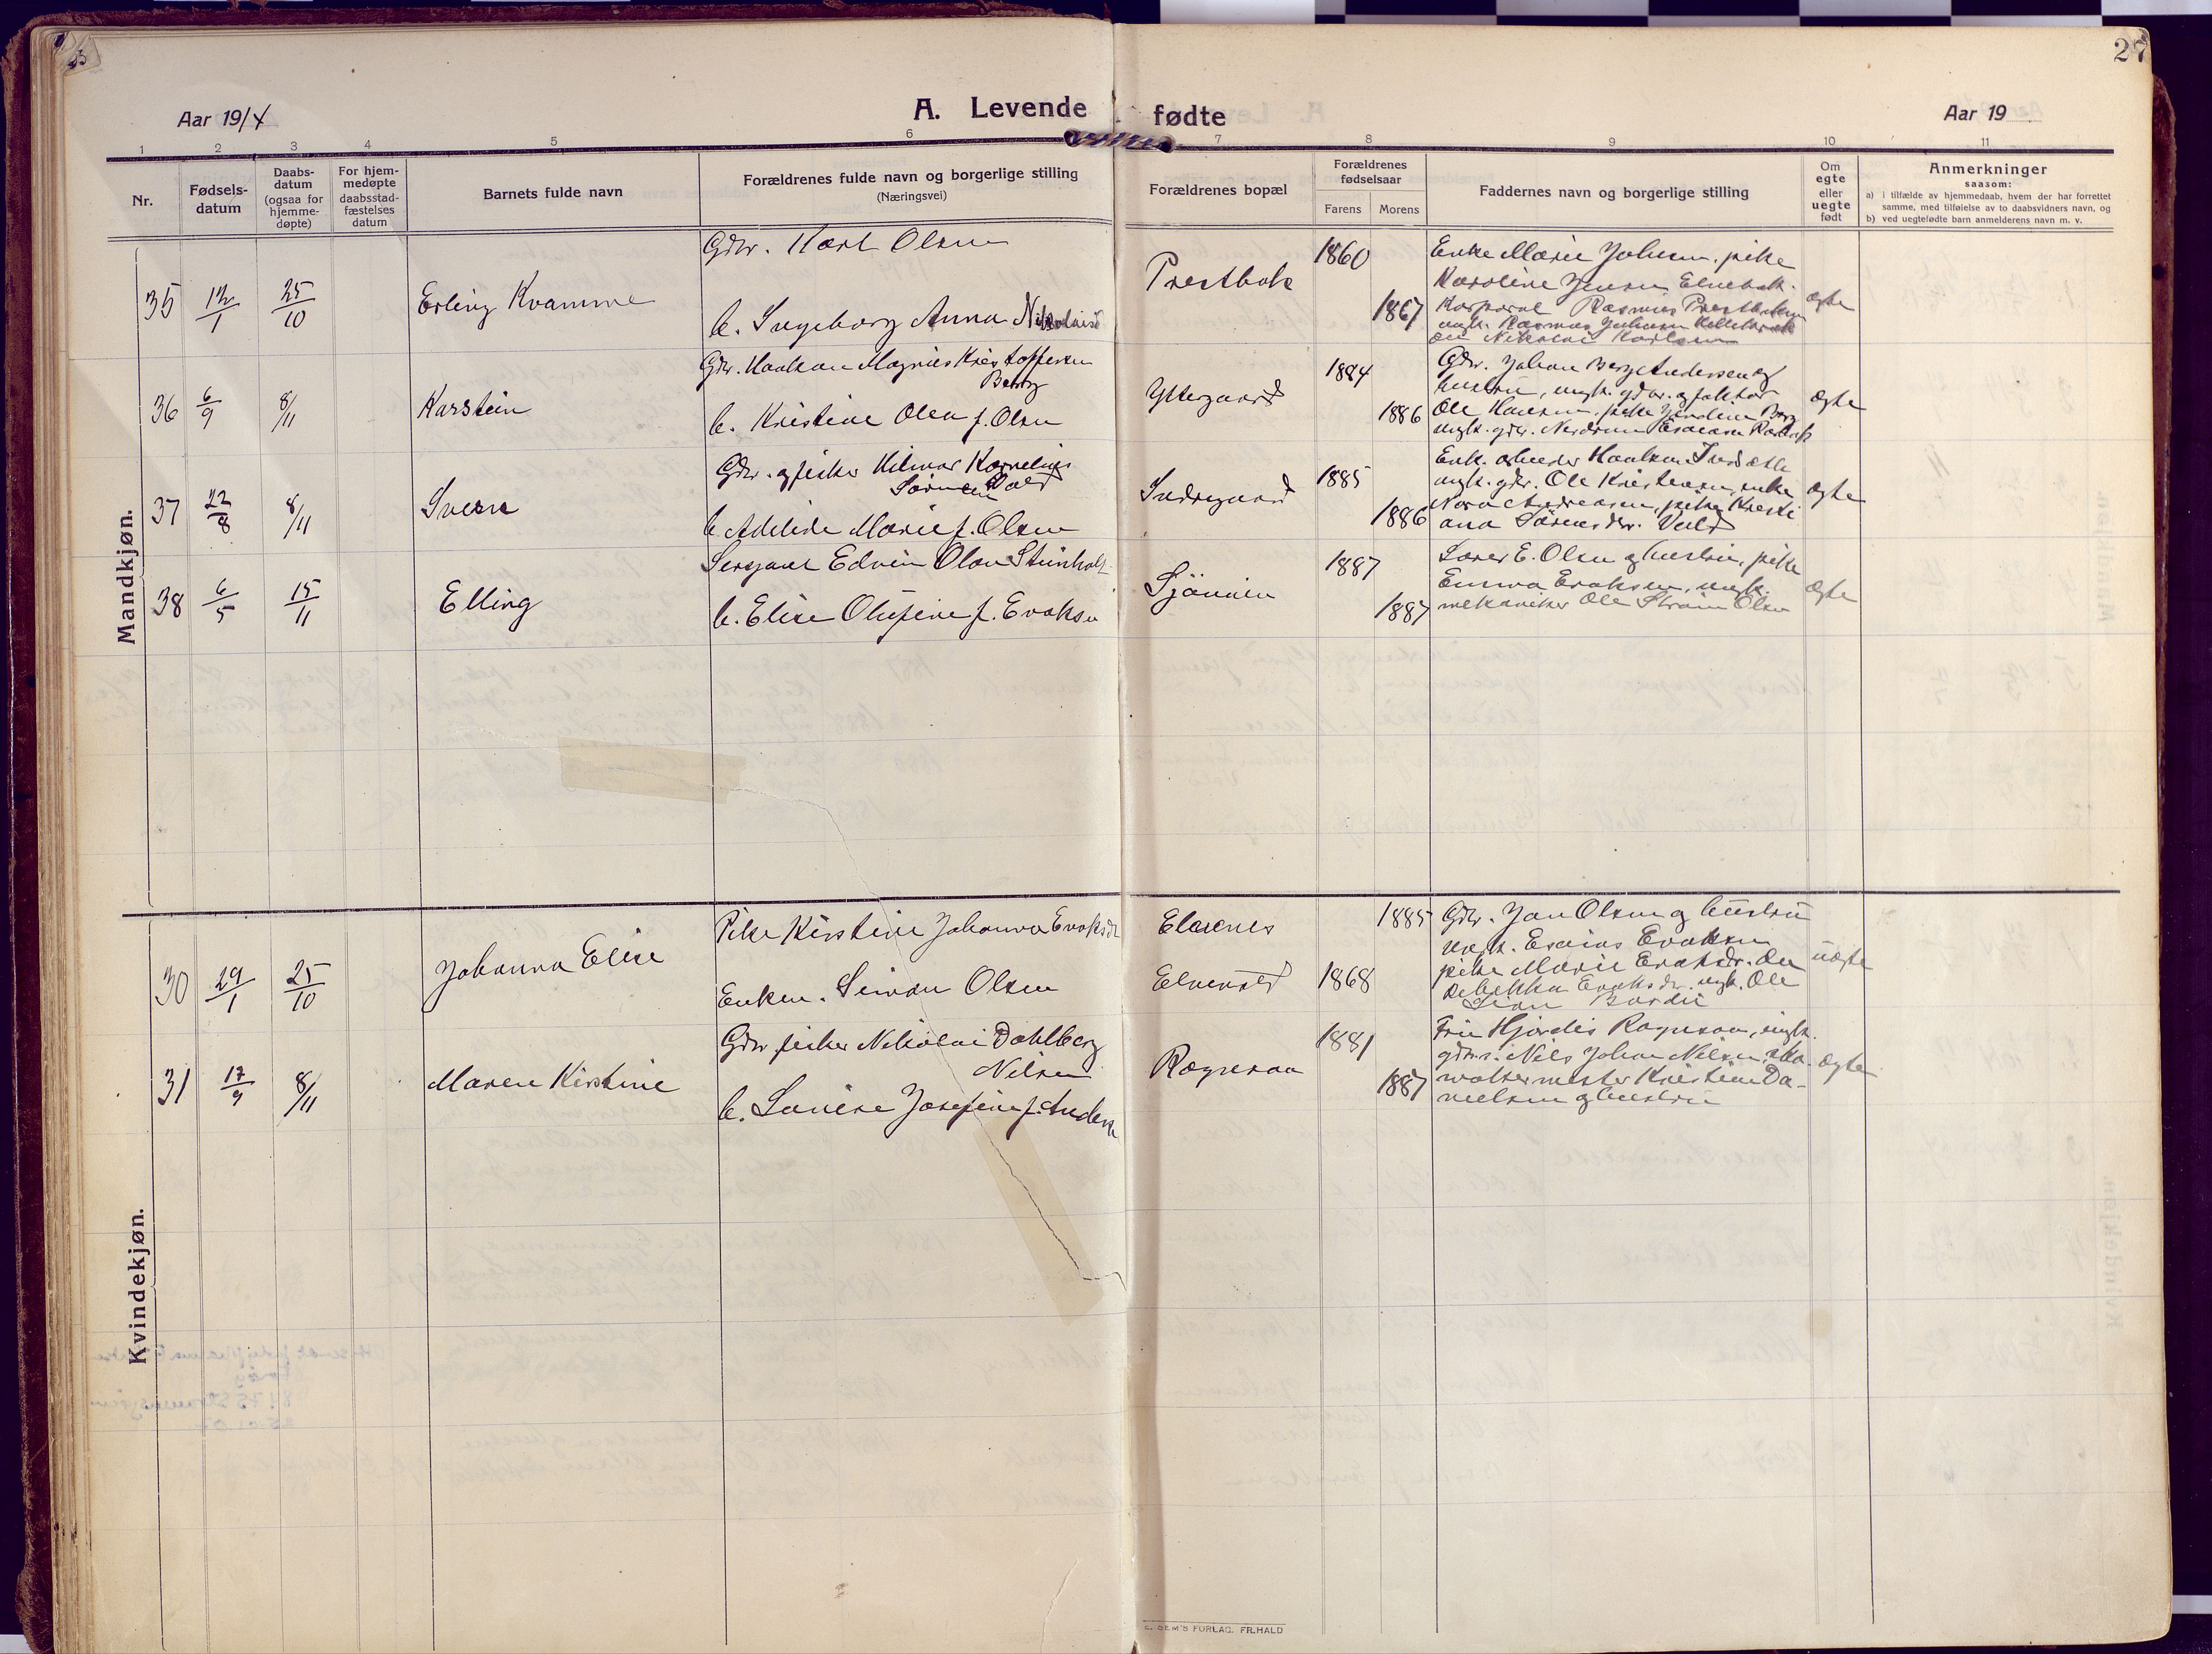 27
Aar 1914
A. Levende fødte
Aar 19
1 2 3 4 5 6 7 8 9 10 11
Nr.
Fødsels-
datum
Daabs-
datum
(ogsaa for
hjemme-
døpte)
For hjem-
medøpte
daabsstad-
fæstelses
datum
Barnets fulde navn
Forældrenes fulde navn og borgerlige stilling
(Næringsvei)
Forældrenes bopæl
Forældrenes
fødselsaar
Farens Morens
Faddernes navn og borgerlige stilling
Om
egte
eller
uegte
født
Anmerkninger
saasom:
a) i tilfælde av hjemmedaab, hvem der har forrettet
samme, med tilføielse av to daabsvidners navn, og
b) ved uegtefødte barn anmelderens navn m. v.
Mandkjøn.
35 12/1 25/10 Erling Kvamme
Gdbr. Karl Olsen
h. Ingeborg Anna Nikolais
Prestbak
1860
1867
Enke Marie Johnsen, pike
Karoline Jensen Elvebak.
Korporal Rasmus Prestbakm
ungk. Rasmus Johnsen
Nikolai Karlsen
egte
36 6/9 8/11 Karstein
Gdr. Haakon Magnus Kristoffersen
Berg
h. Kristine Olea f. Olsen
Yttergaard
1884
1886
Gdr. Johan Berg Andersen og
hustru, ungk. gdbr. og faktor
Ole Hansen, pike Jendine Berg
ungk. gdr.
egte
37 22/8 8/11 Sverre
Gdr. og fisker Hilmar Kornelius
Sörensen Vald
h. Adelide Marie f. Olsen
Indregaard
1885
1886
Enk. arbeider Haakon
ungk. gdr. Ole Kristensen, enke
Nora Andreasen, pike Kristi
ana Sörensdr. Vald
egte
38 6/5 15/11 Elling
Sersjant Edvin Olav Steinholt
h. Elise Olufine f. Evaksen
Sjöveien
1887
1887
Lærer E. Olsen og hustru, pike
Emma Evaksen, ungk.
mekaniker Ole Ström Olsen
egte
Kvindekjøn.
30 29/1 25/10 Johanna Elise
Pike Kirstine Johanna Evaksdr
Enkem. Simon Olsen
Elvenes
Elvevold
1885
1868
Gdr. Jon Olsen og hustru
ungk. Esaias Evaksen
pike Marie Evaksdr. do
Rebekka Evaksdr. ungk. Ole
uegte
31 17/9 8/11 Maren Kirstine
Gdr fisker Nikolai Dahlberg
Nilsen
h. Lovise Josefine f. Anders
Rognsaa
1881
1887
Fru Hjördis Rognsaa, ungk.
gdbr. Nils Johan Nilsen, ska
Kristian Da-
nielsen og hustru
egte
E. SEM'S FORLAG. FR.HALD